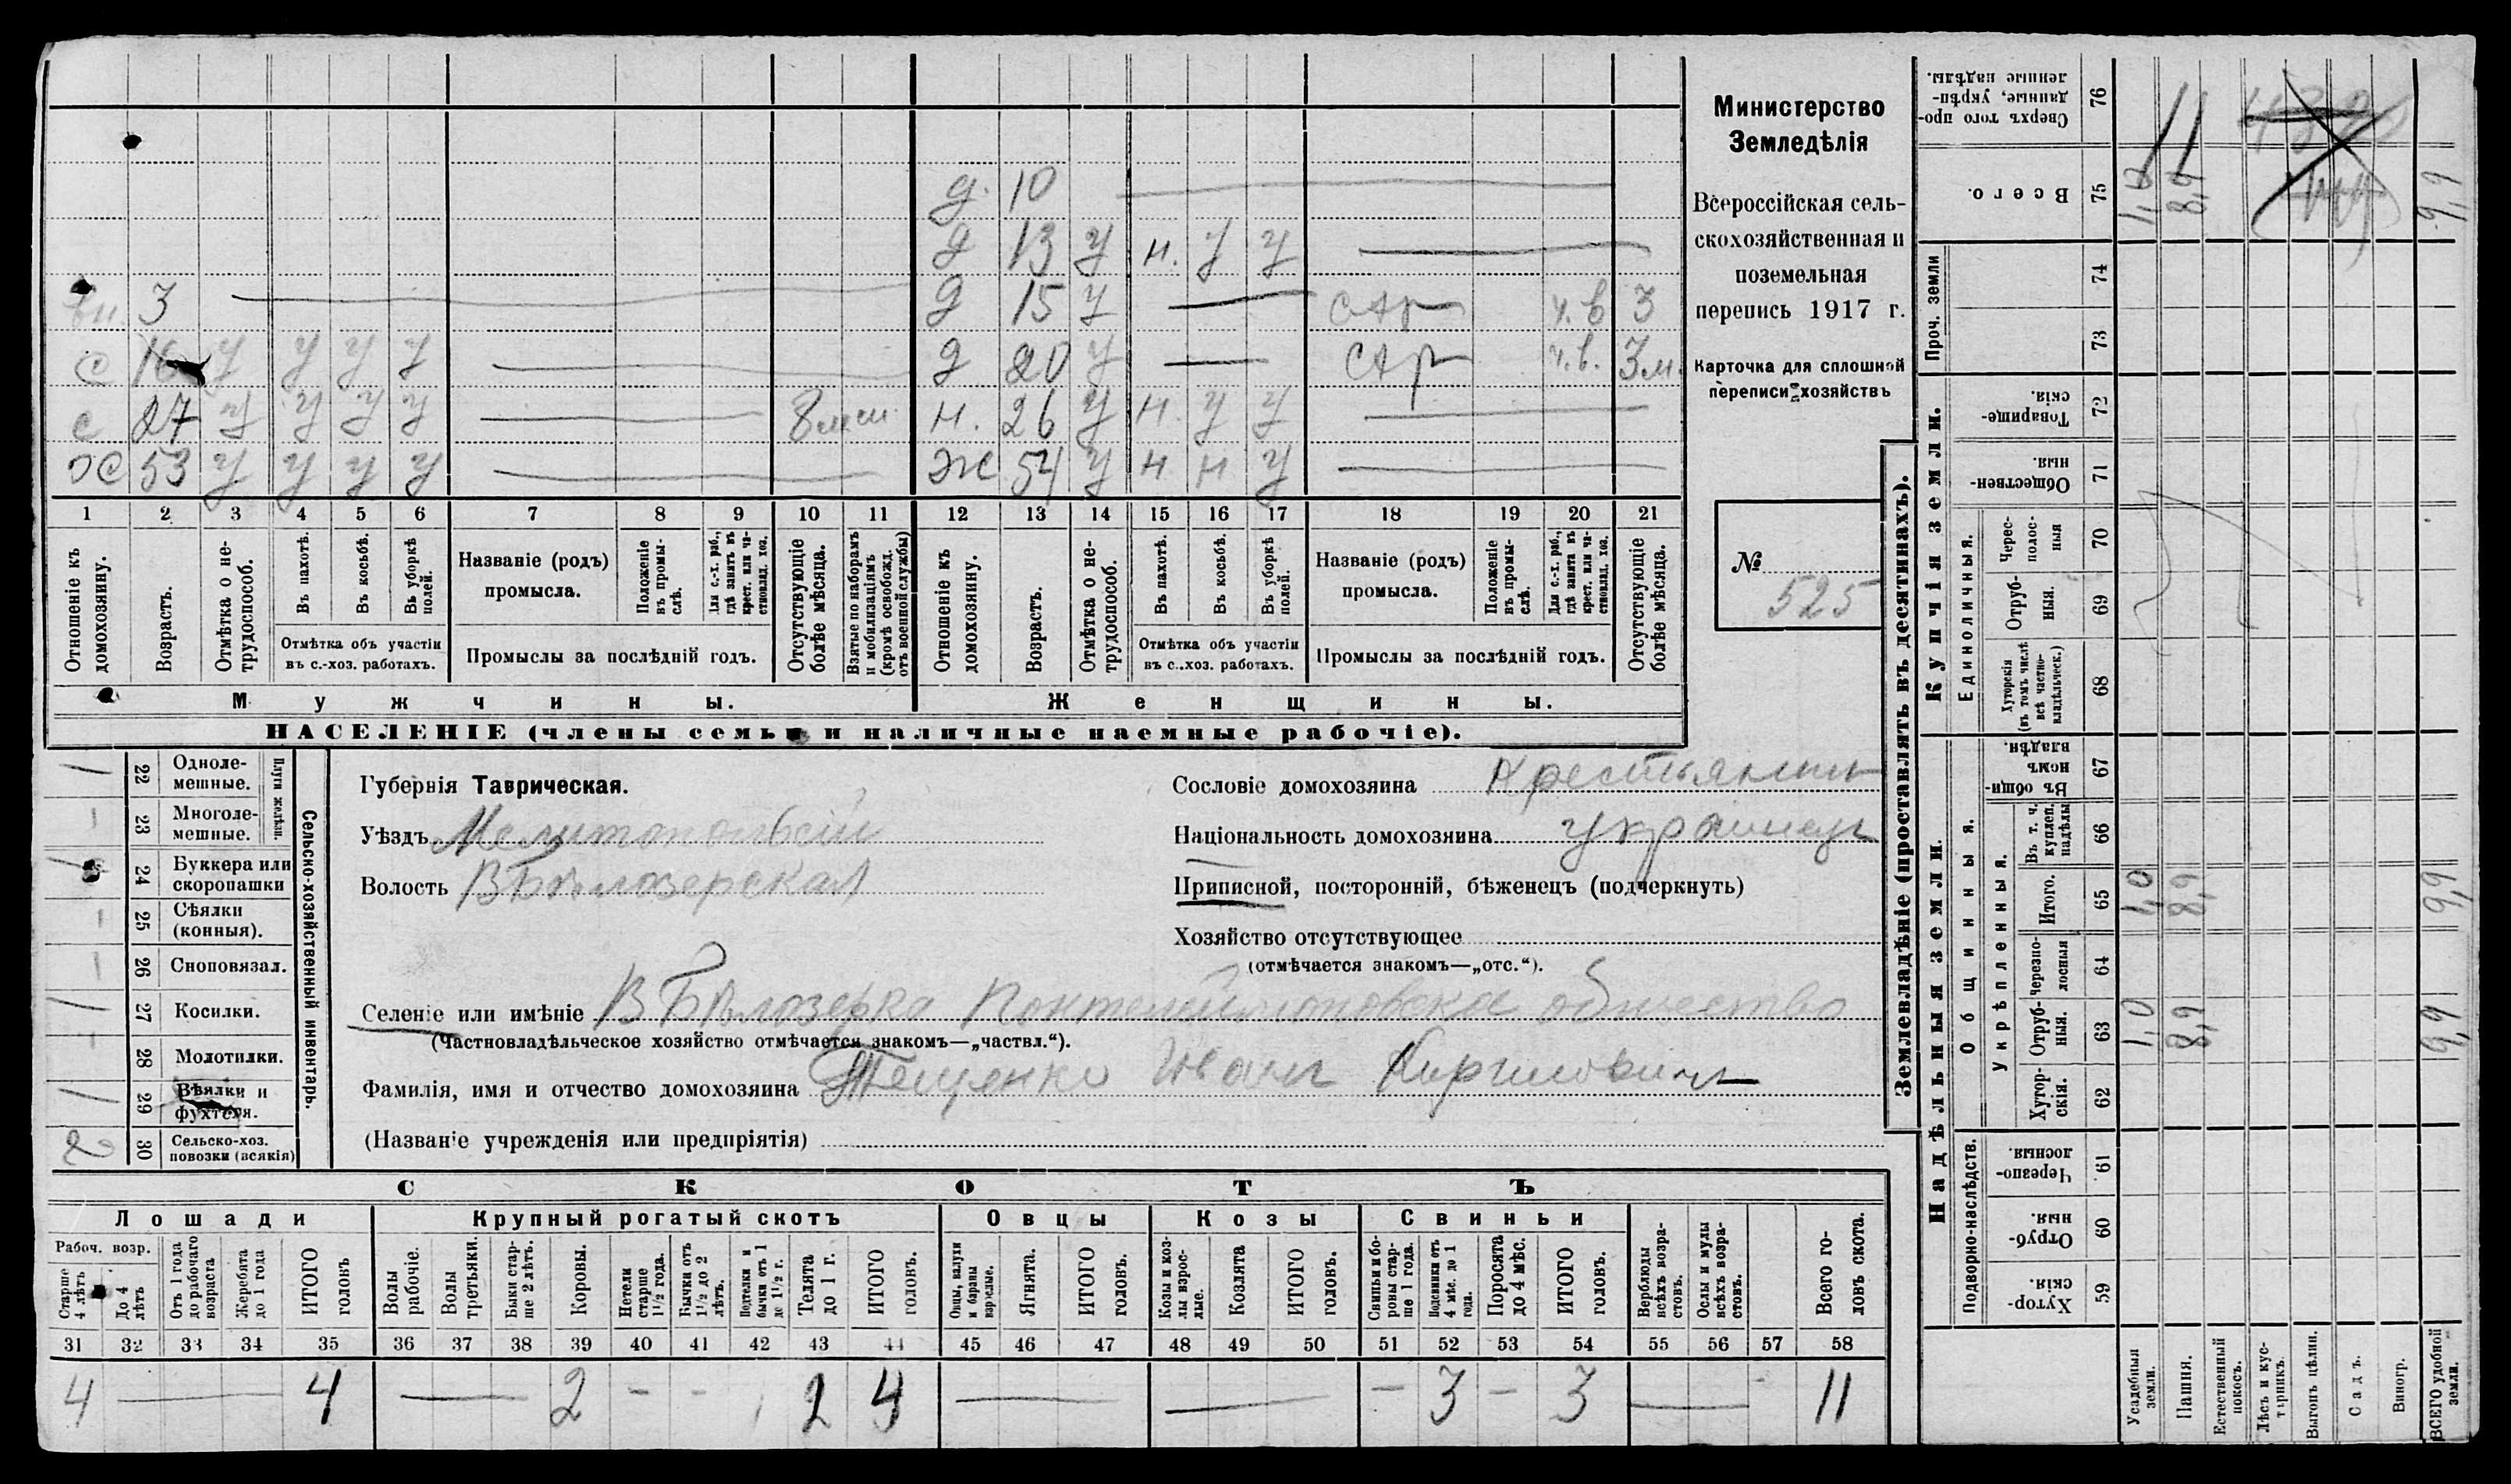 д. 10
д 13 у н. у у —
вн. 3 — д 15 у — сар ч. в 3
с 16 у у у у — д 20 у — сар ч. в. 3 м.
с 27 у у у у — 8 мѣс. н. 26 у н. у у —
х 53 у у у у — ж 54 у н н у —
1 2 3 4 5 6 7 8 9 10 11 12 13 14 15 16 17 18 19 20 21
Отношеніе къ домохозяину.
Возрастъ.
Отмѣтка о нетрудоспособ.
Въ пахотѣ.
Въ косьбѣ.
Въ уборкѣ полей.
Отмѣтка объ участіи въ с.-хоз. работахъ.
Названіе (родъ) промысла.
Положеніе въ промыслѣ.
Для с.-х. раб., гдѣ занятъ въ крест. или частновлад. хоз.
Промыслы за послѣдній годъ.
Отсутствующіе болѣе мѣсяца.
Взятые по наборамъ и мобилизаціямъ (кромѣ освобожд. отъ военной службы)
Отношеніе къ домохозяину.
Возрастъ.
Отмѣтка о нетрудоспособ.
Въ пахотѣ.
Въ косьбѣ.
Въ уборкѣ полей.
Отмѣтка объ участіи въ с.-хоз. работахъ.
Названіе (родъ) промысла.
Положеніе въ промыслѣ.
Для с.-х. раб., гдѣ занята въ крест. или частновлад. хоз.
Промыслы за послѣдній годъ.
Отсутствующіе болѣе мѣсяца.
Мужчины. Женщины.
НАСЕЛЕНІЕ (члены семьи и наличные наемные рабочіе).
Министерство
Земледѣлія
Всероссійская сель-
скохозяйственная и
поземельная
перепись 1917 г.
Карточка для сплошной
переписи хозяйствъ
№ 525
Сельско-хозяйственный инвентарь.
Плуги желѣзн.
22 Однолемешные.
23 Многолемешные.
24 Буккера или скоропашки
25 Сѣялки (конныя).
26 Сноповязал.
27 Косилки.
28 Молотилки.
29 Вѣялки и фухтеля.
2 30 Сельско-хоз. повозки (всякія)
Губернія Таврическая.
Уѣздъ Мелитопольскій
Волость В Бѣлозерская
Сословіе домохозяина Крестьянинъ
Національность домохозяина украинецъ
Приписной, посторонній, бѣженецъ (подчеркнуть)
Хозяйство отсутствующее
(отмѣчается знакомъ—„отс.“).
Селеніе или имѣніе В Бѣлозерка Понтелеймоновское общество
(Частновладѣльческое хозяйство отмѣчается знакомъ—„частвл.“).
Фамилія, имя и отчество домохозяина Тещенко Иванъ Кириловичъ
(Названіе учрежденія или предпріятія)
СКОТЪ
Лошади Крупный рогатый скотъ Овцы Козы Свиньи
Рабоч. возр.
Старше 4 лѣтъ
До 4 лѣтъ
Отъ 1 года до рабочаго возраста
Жеребята до 1 года
ИТОГО головъ
Волы рабочіе.
Волы третьяки.
Быки старше 2 лѣтъ.
Коровы.
Нетели старше 1½ года.
Бычки отъ 1½ до 2 лѣтъ.
Подтелки и бычки отъ 1 до 1½ г.
Телята до 1 г.
ИТОГО головъ.
Овцы, валухи и бараны взрослые.
Ягнята.
ИТОГО головъ.
Козы и козлы взрослые.
Козлята
ИТОГО головъ.
Свиньи и боровы старше 1 года.
Подсвинки отъ 4 мѣс. до 1 года.
Поросята до 4 мѣс.
ИТОГО головъ.
Верблюды всѣхъ возрастовъ.
Ослы и мулы всѣхъ возрастовъ.
Всего головъ скота.
31 32 33 34 35 36 37 38 39 40 41 42 43 44 45 46 47 48 49 50 51 52 53 54 55 56 57 58
4 — 4 — 2 - - 2 4 — — — 3 — 3 — 11
Землевладѣніе (проставлять въ десятинахъ).
Сверхъ того проданные, укрѣпленные надѣлы. 76
Всего. 75 1,0 8,9 9,9
Проч. земли 74 73
Купчія земли.
Товарищескія. 72
Общественныя. 71
Единоличныя.
Чересполосныя 70
Отрубныя. 69
Хуторскія (въ томъ числѣ всѣ частновладѣльческ.) 68
Надѣльныя земли.
Общинныя.
Въ общинномъ владѣн. 67
Укрѣпленныя.
Въ т. ч. куплен. надѣлы 66
Итого. 65 1,0 8,9 9,9
Черезполосныя 64
Отрубныя. 63 1,0 8,9 9,9
Хуторскія. 62
Подворно-наслѣдств.
Черезполосныя. 61
Отрубныя. 60
Хуторскія. 59
Усадебныя земли.
Пашня.
Естественный покосъ.
Лѣсъ и кустарникъ.
Выгонъ цѣлин.
Садъ.
Виногр.
ВСЕГО удобной земли.